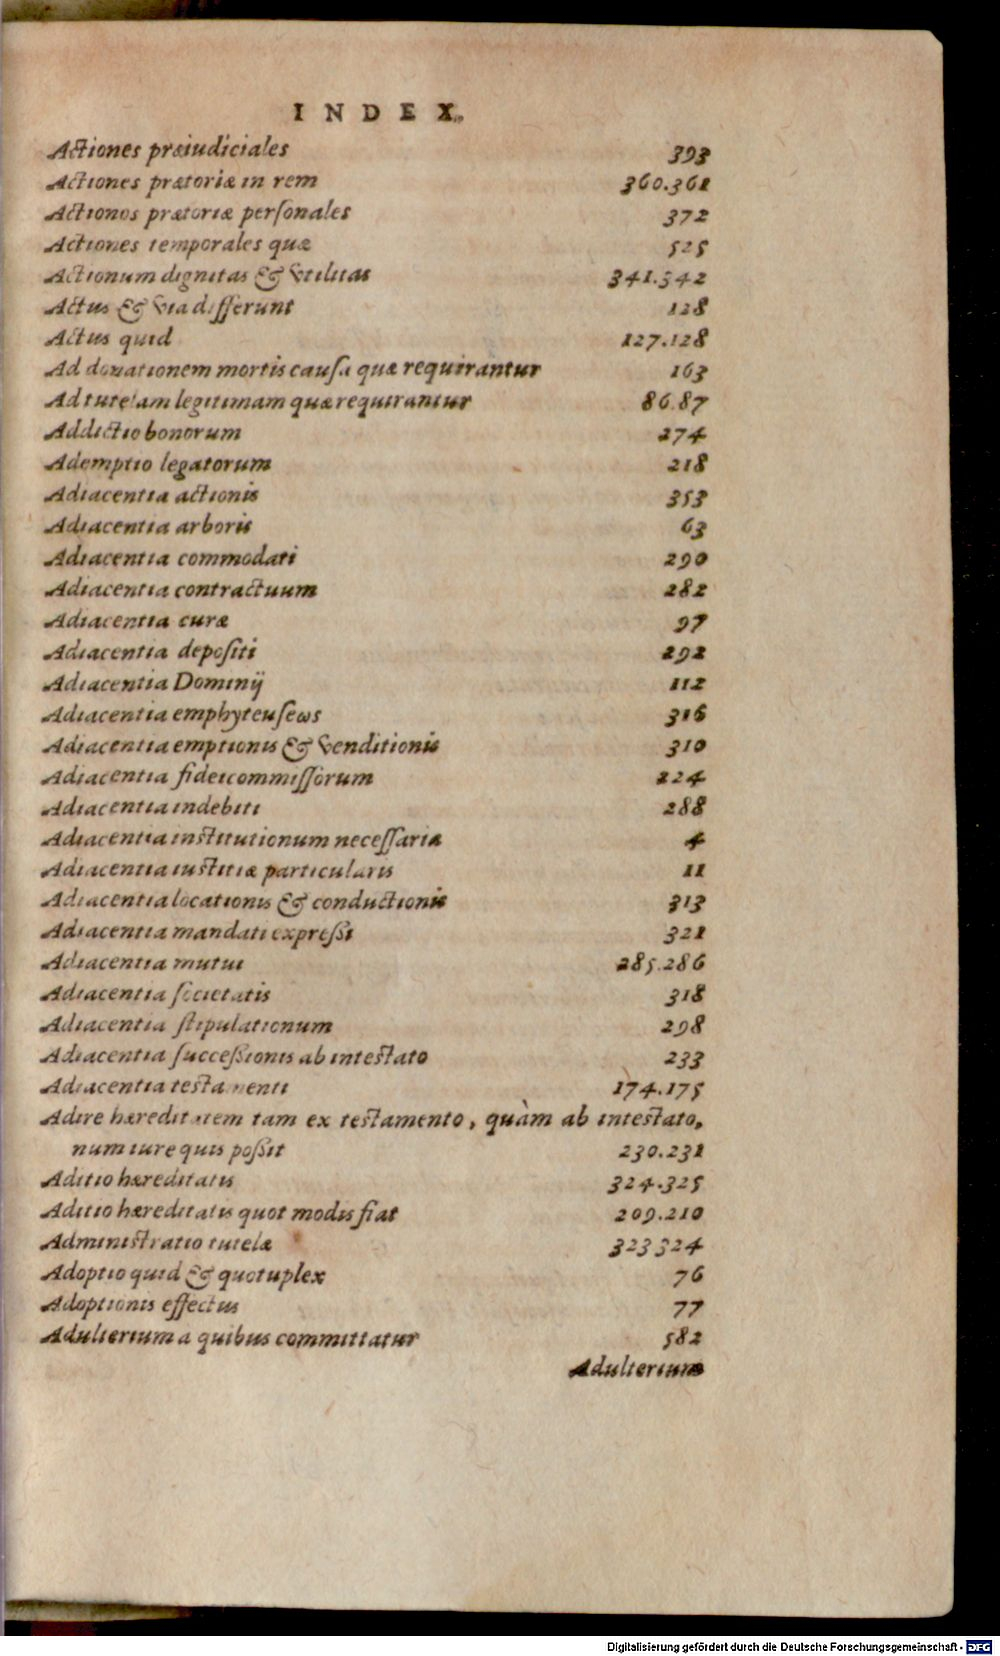 INDEX.
Actiones præiudiciales 393
Actiones prætoriæ in rem 360.361
Actionos prætoriæ perſonales 372
Actiones temporales quæ 525
Actionum dignitas & vtilitas 341.342
Actus & via differunt 128
Actus quid 127.128
Ad donationem mortis cauſa quæ requirantur 163
Ad tutelam legitimam quæ requirantur 86.87
Addictio bonorum 274
Ademptio legatorum 218
Adiacentia actionis 353
Adiacentia arboris 63
Adiacentia commodati 290
Adiacentia contractuum 282
Adiacentia curæ 97
Adiacentia depoſiti 292
Adiacentia Dominij 112
Adiacentia emphyteuſeωs 316
Adiacentia emptionis & venditionis 310
Adiacentia fideicommiſſorum 224
Adiacentia indebiti 288
Adiacentia institutionum neceſſaria 4
Adiacentia iustitiæ particularis 11
Adiacentia locationis & conductionis 313
Adiacentia mandati expreſſi 321
Adiacentia mutui 285.286
Adiacentia ſocietatis 318
Adiacentia stipulationum 298
Adiacentia ſucceſſionis ab intestato 233
Adiacentia testamenti 174.175
Adire hæreditatem tam ex testamento, quàm ab intestato,
num iure quis poſſit 230.231
Aditio hæreditatis 324.325
Aditio hæreditatis quot modis fiat 209.210
Administratio tutelæ 323 324
Adoptio quid & quotuplex 76
Adoptionis effectus 77
Adulterium a quibus committatur 582
Adulterium
Digitalisierung gefördert durch die Deutsche Forschungsgemeinschaft - DFG